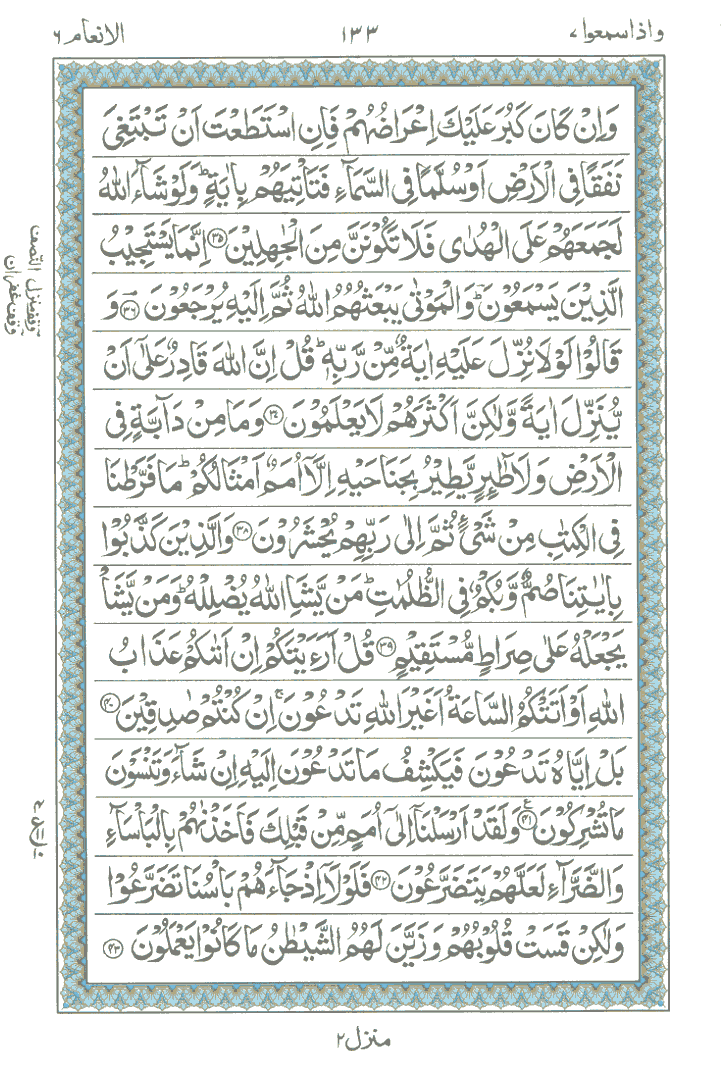 واذاسمعوا ۷
۱۳۳
الانعام ۶
وَاِنْ كَانَ كَبُرَ عَلَيْكَ اِعْرَاضُهُمْ فَاِنِ اسْتَطَعْتَ اَنْ تَبْتَغِىَ
نَفَقًا فِى الْاَرْضِ اَوْ سُلَّمًا فِى السَّمَآءِ فَتَاْتِيَهُمْ بِاٰيَةٍ ؕ وَلَوْ شَآءَ اللّٰهُ
لَجَمَعَهُمْ عَلَى الْهُدٰى فَلَا تَكُوْنَنَّ مِنَ الْجٰهِلِيْنَ ۳۵ اِنَّمَا يَسْتَجِيْبُ
الَّذِيْنَ يَسْمَعُوْنَ ؕ وَالْمَوْتٰى يَبْعَثُهُمُ اللّٰهُ ثُمَّ اِلَيْهِ يُرْجَعُوْنَ ۳۶ وَ
قَالُوْا لَوْلَا نُزِّلَ عَلَيْهِ اٰيَةٌ مِّنْ رَّبِّهٖ ؕ قُلْ اِنَّ اللّٰهَ قَادِرٌ عَلٰٓى اَنْ
يُّنَزِّلَ اٰيَةً وَّلٰكِنَّ اَكْثَرَهُمْ لَا يَعْلَمُوْنَ ۳۷ وَمَا مِنْ دَآبَّةٍ فِى
الْاَرْضِ وَلَا طٰٓئِرٍ يَّطِيْرُ بِجَنَاحَيْهِ اِلَّاۤ اُمَمٌ اَمْثَالُكُمْ ؕ مَا فَرَّطْنَا
فِى الْكِتٰبِ مِنْ شَىْءٍ ثُمَّ اِلٰى رَبِّهِمْ يُحْشَرُوْنَ ۳۸ وَالَّذِيْنَ كَذَّبُوْا
بِاٰيٰتِنَا صُمٌّ وَّبُكْمٌ فِى الظُّلُمٰتِ ؕ مَنْ يَّشَاِ اللّٰهُ يُضْلِلْهُ ؕ وَمَنْ يَّشَاْ
يَجْعَلْهُ عَلٰى صِرَاطٍ مُّسْتَقِيْمٍ ۳۹ قُلْ اَرَءَيْتَكُمْ اِنْ اَتٰىكُمْ عَذَابُ
اللّٰهِ اَوْ اَتَتْكُمُ السَّاعَةُ اَغَيْرَ اللّٰهِ تَدْعُوْنَ ۚ اِنْ كُنْتُمْ صٰدِقِيْنَ ۴۰
بَلْ اِيَّاهُ تَدْعُوْنَ فَيَكْشِفُ مَا تَدْعُوْنَ اِلَيْهِ اِنْ شَآءَ وَتَنْسَوْنَ
مَا تُشْرِكُوْنَ ۴۱ ع وَلَقَدْ اَرْسَلْنَاۤ اِلٰٓى اُمَمٍ مِّنْ قَبْلِكَ فَاَخَذْنٰهُمْ بِالْبَاْسَآءِ
وَالضَّرَّآءِ لَعَلَّهُمْ يَتَضَرَّعُوْنَ ۴۲ فَلَوْلَاۤ اِذْ جَآءَهُمْ بَاْسُنَا تَضَرَّعُوْا
وَلٰكِنْ قَسَتْ قُلُوْبُهُمْ وَزَيَّنَ لَهُمُ الشَّيْطٰنُ مَا كَانُوْا يَعْمَلُوْنَ ۴۳
النصف
وقف منزل
وقف غفران
منزل ۲